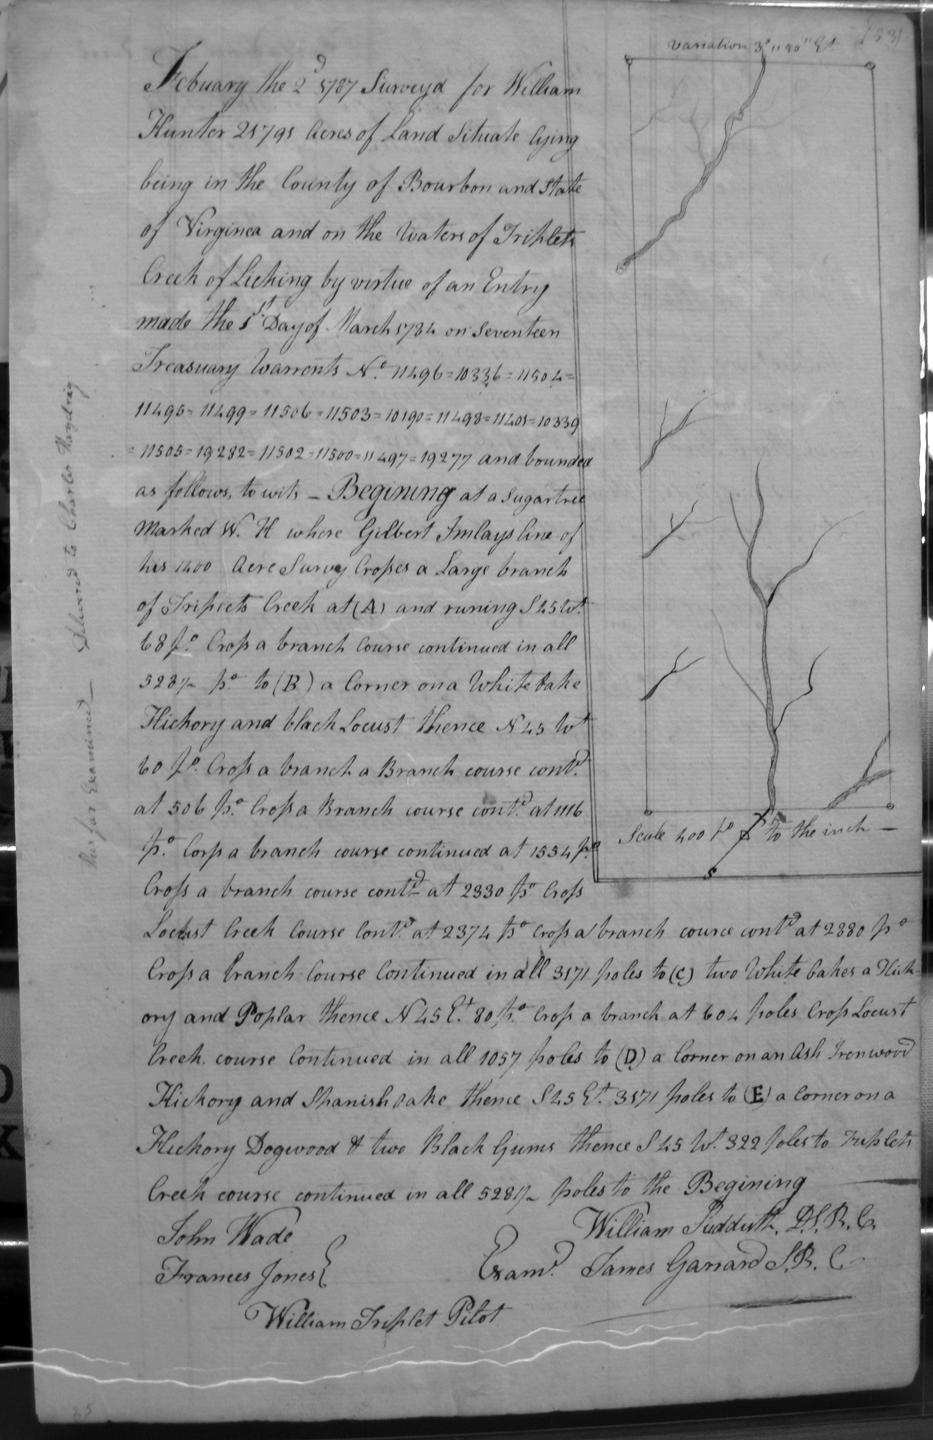 variation 3° " 30" Et
Febuary the 2d 1787 Surveyd for William
Hunter 21791 Acres of Land Situate lying
being in the County of Bourbon and State
of Virginea and on the Waters of Triplets
Creek of Licking by virtue of an Entry
made the 1st Day of March 1784 on Seventeen
Treasuary Warrents No. 11496=10336=11504=
11495=11499=11506=11503=10190=11498=11401=10339
=11505=19282=11502=11500=11497=19277 and bounded
as follows, to wit, — Begining at a Sugartree
Marked W. H where Gilbert Imlays line of
his 1400 Acre Survey Crosses a Large branch
of Triplets Creek at (A) and runing S 45 Wt.
68 po. Cross a branch Course continued in all
528½ po to (B) a Corner on a White Oake
Hickory and black Locust thence N 45 Wt
60 po. Cross a branch a Branch course contd.
at 506 po. Cross a Branch course contd at 1116
po. Corss a branch course continued at 1534 po
Cross a branch course contd at 2330 po Cross
Locust Creek Course Contd. at 2374 po Cross a branch cource contd at 2880 po
Cross a branch Course Continued in all 3171 poles to (C) two White Oakes a Hick-
ory and Poplar thence N 45 Et. 80 po. Cross a branch at 604 poles Cross Locust
Creek course Continued in all 1057 poles to (D) a Corner on an Ash Ironwood
Hickory and Spanish Oake thence S 45 Et. 3171 poles to (E) a Corner on a
Hickory Dogwood & two Black Gums thence S 45 Wt. 322 poles to Triplets
Creek course continued in all 528½ poles to the Begining
John Wade
William Sudduth. D.S.B.C.
Frances Jones
Examd. James Garrard S.B.C
William Triplet Pilot
Scale 400 po to the inch —
this far Examined —
to Charles
25